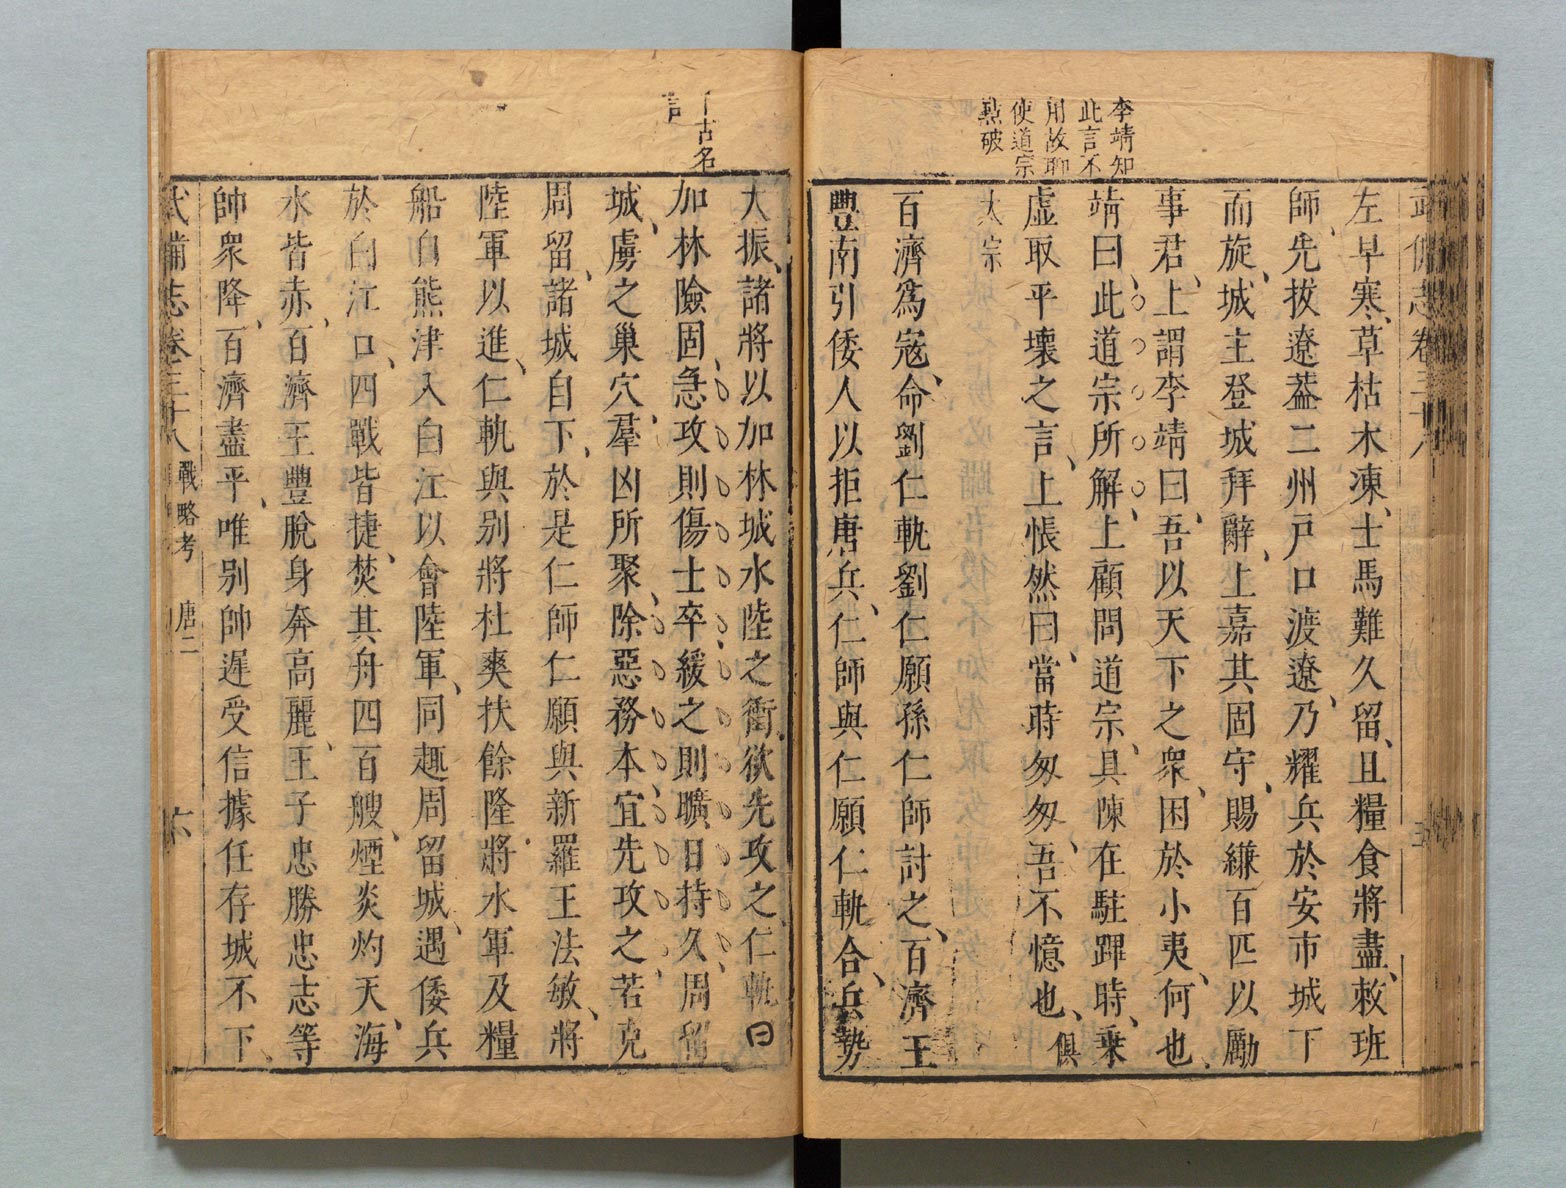 武備志卷三十八
李靖知
此言不
用故聊
使道宗
㸃破
左早寒草枯水凍士馬難久留且糧食將盡敕班
師先拔遼葢二州戸口渡遼乃耀兵於安市城下
而旋城主登城拜辭上嘉其固守賜縑百匹以勵
事君上謂李靖曰吾以天下之衆困於小夷何也
靖曰此道宗所解上顧問道宗具陳在駐蹕時乗
虛取平壤之言上悵然曰當時匆匆吾不憶也俱
太宗
百濟爲寇命劉仁軌劉仁願孫仁師討之百濟王
豐南引倭人以拒唐兵仁師與仁願仁軌合兵勢
古名
言
大振諸將以加林城水陸之衝欲先攻之仁軌曰
加林險固急攻則傷士卒緩之則曠日持久周留
城虜之巢穴羣凶所聚除惡務本宜先攻之若克
周留諸城自下於是仁師仁願與新羅王法敏將
陸軍以進仁軌與别將杜爽扶餘隆將水軍及糧
船自熊津入白江以會陸軍同趣周留城遇倭兵
於白江口四戰皆捷焚其舟四百艘煙炎灼天海
水皆赤百濟王豐脫身奔高麗王子忠勝忠志等
帥衆降百濟盡平唯别帥遲受信據任存城不下
武備志卷三十八 戰略考 唐二